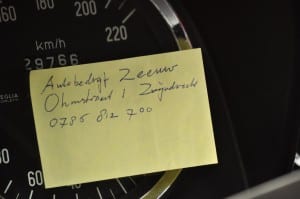 160
180
200
220
km/h
29766
VEGLIA
Autobedrijf Zeeuw
Ohmstraat 1 Zwijndrecht
0785 812 700
60
40
120
100